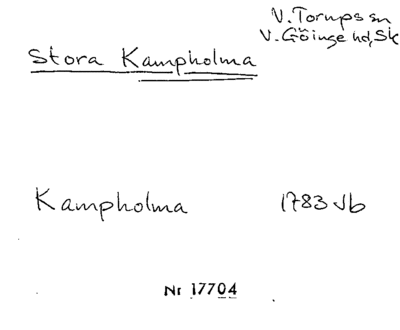 V. Torups sn
V. Göinge hd, Sk
Stora Kampholma
Kampholma 1783 Jb
Nr 17704